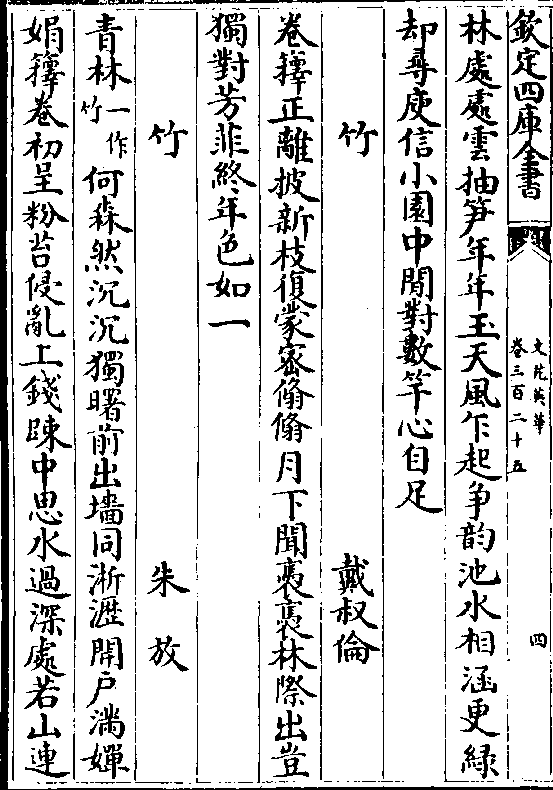 欽定四庫全書
文苑英華
卷三百二十五
四
林處處雲抽笋年年玉天風乍起爭韵池水相涵更緑
却尋庾信小園中閒對數竿心自足
竹
戴叔倫
卷籜正離披新枝復蒙密翛翛月下聞褭褭林際出豈
獨對芳菲終年色如一
竹
朱放
青林一作竹何森然沉沉獨曙前出墻同淅瀝開戶滿嬋
娟籜卷初呈粉苔侵亂上錢踈中思水過深處若山連